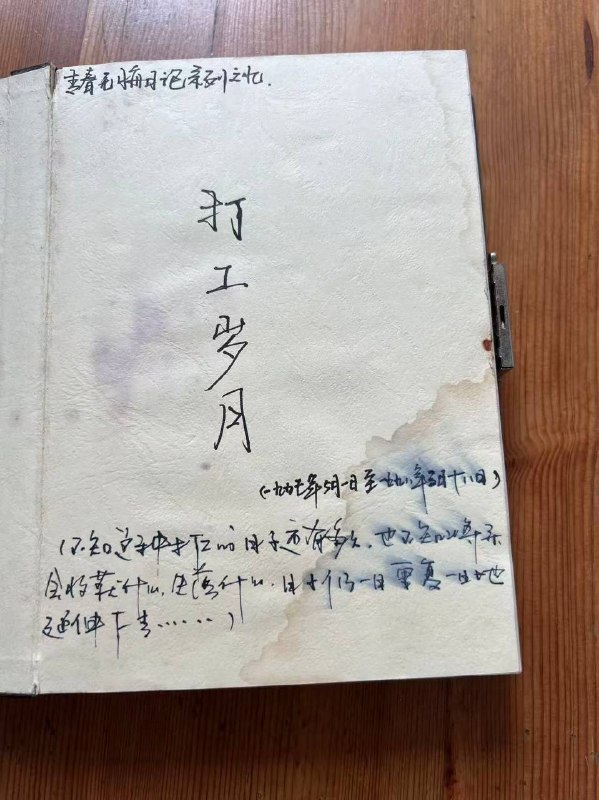 青春无悔日记系列之忆.
打工岁月
(一九九七年5月1日至一九九八年5月十八日)
(不知道这种打工的日子还有多久,也不知道
会收获什么,失落什么,日子仍一日重复一日地
延伸下去……)